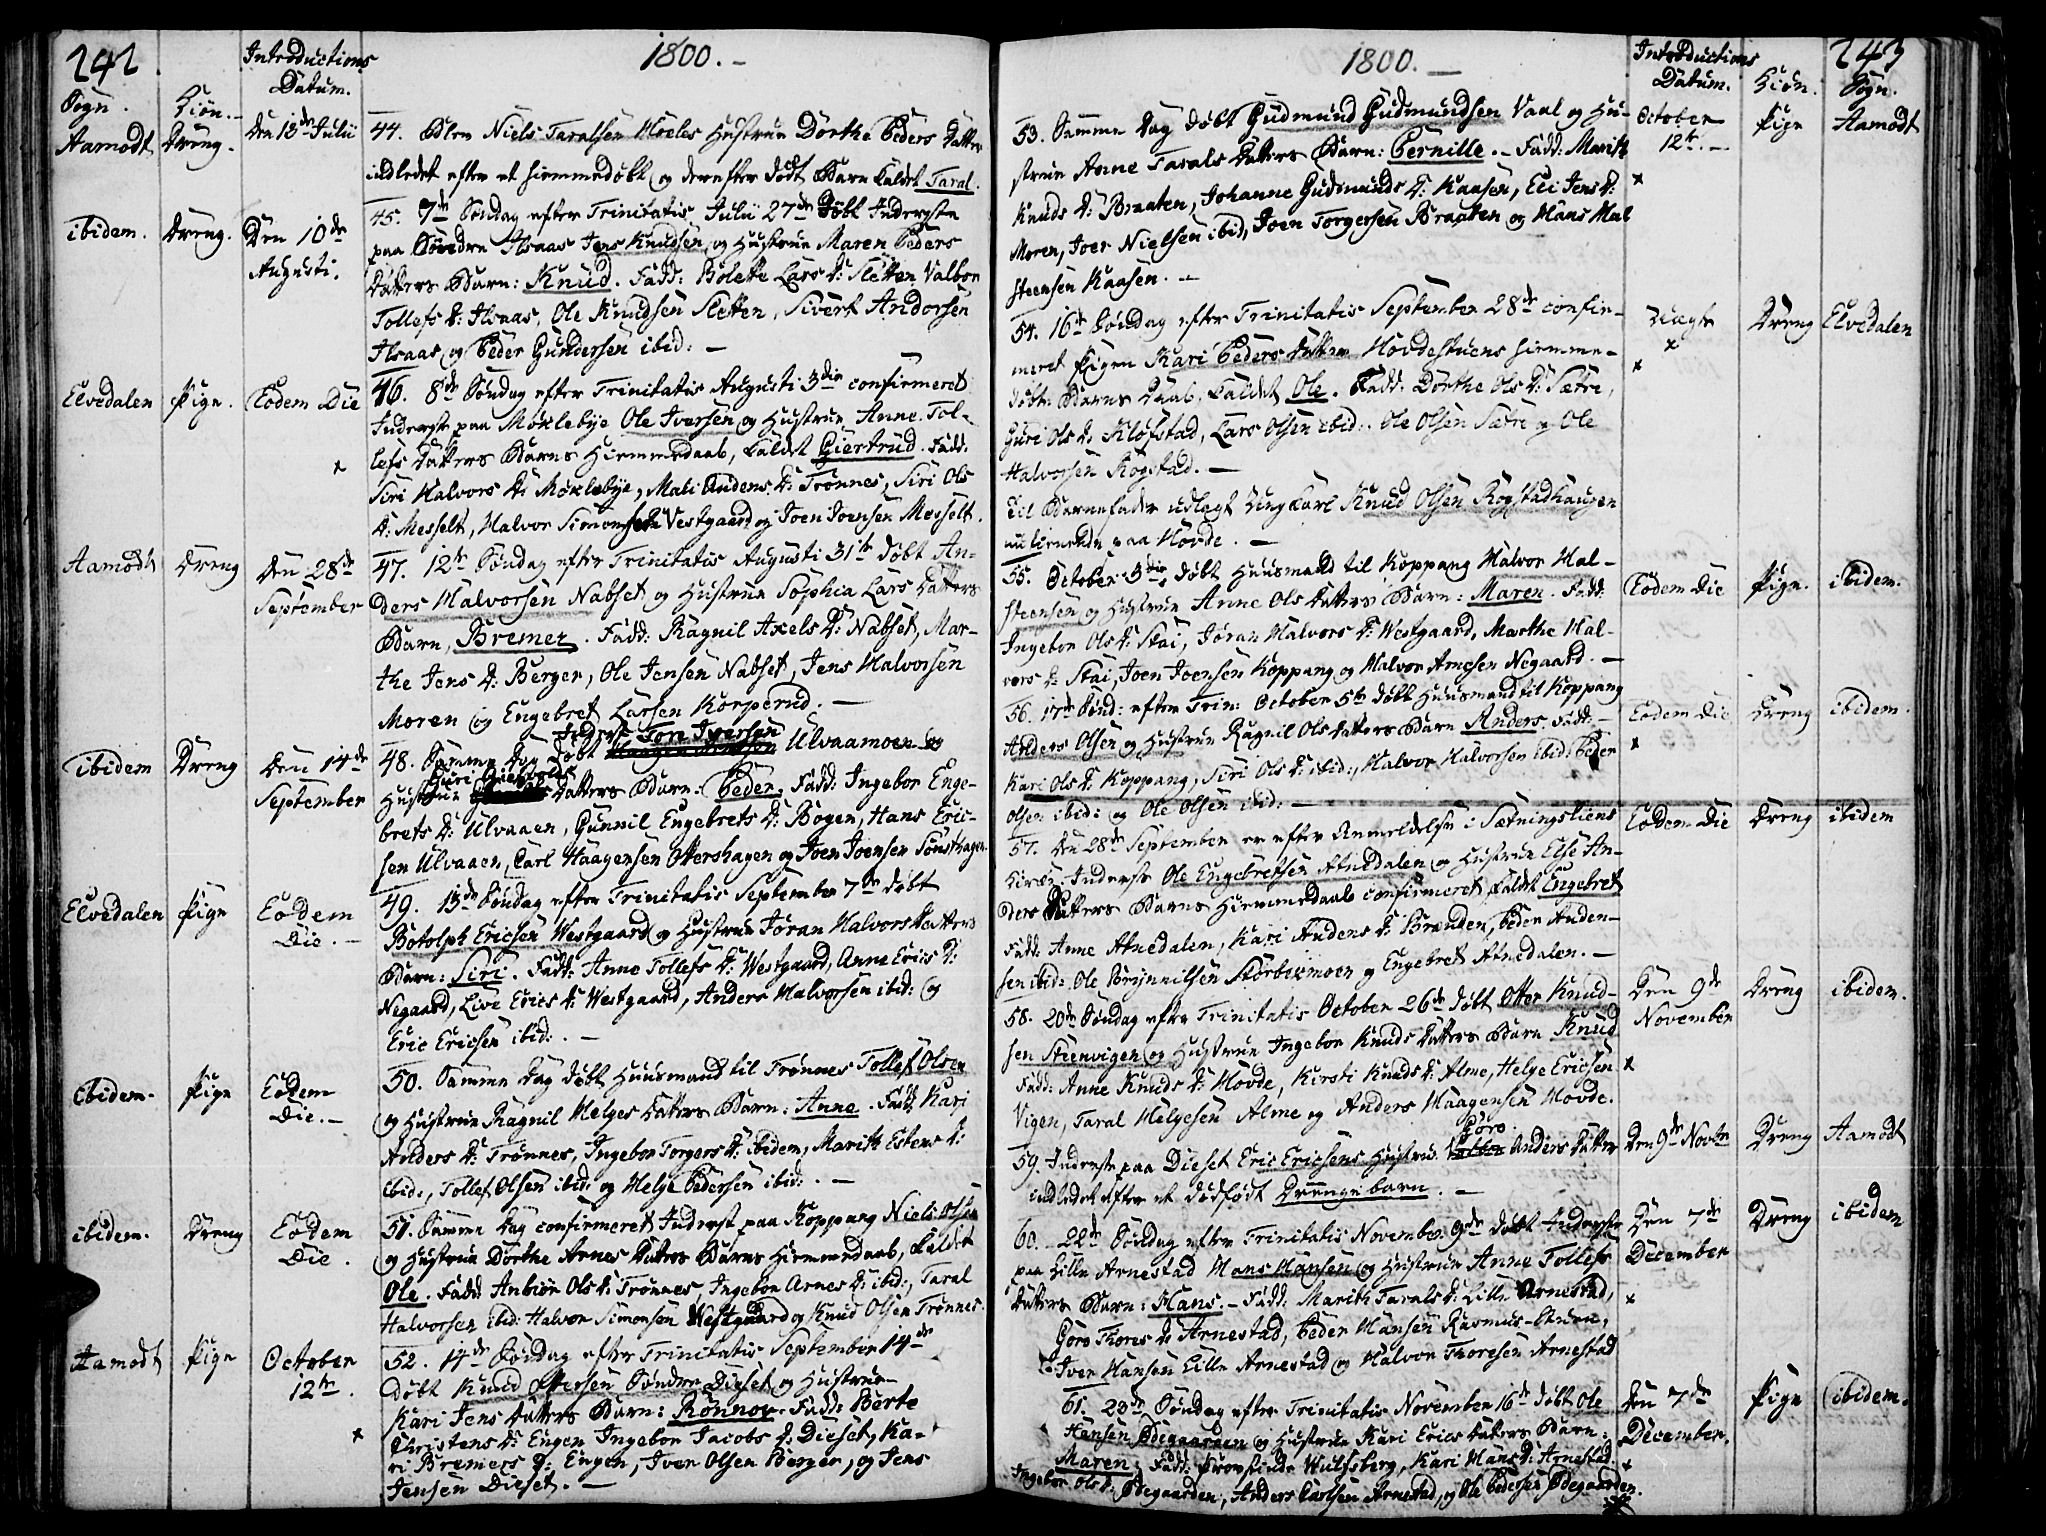 242.
Introductions
Datum.
1800.-
Sogn.
Kiön.
Aamodt
Dreng.
Den 13de Julii
44. Bdren Niels Taralsen Moeles Hustrue Dorthe Peders Datter
indledet efter et hiemmedöbt og derefter dödt Barn kaldet Taral.
ibidem.
Dreng.
Den 10de
Augusti.
45. 7de Söndag efter Trinitatis Julii 27de döbt Inderste
paa Söndre Ilsaas Jens Knudsen og Hustrue Maren Peders
Datters Barn: Knud. Fadd: Bolette Lars D: Sletten, Valbor
Tollefs D: Ilsaas, Ole Knudsen Sletten, Sivert Andorsen
Ilsaas og Peder Gundersen ibid: -
Elvedalen
Pige.
Eodem Die
x
46. 8de Söndag efter Trinitatis Augusti 3die confirmeret
Inderste paa Möklebye Ole Iversen og Hustrue Anne Tol-
lefs Datters Barns Hiemmedaab, kaldet Giertrud. Fadd:
Siri Halvors D: Möklebye, Mali Audens D: Trönnes, Siri Ols
D: Messelt, Halvor Simonsen Vestgaard og Joen Joensen Messelt.
Aamodt
Dreng
Den 28de
September
47. 12te Söndag efter Trinitatis Augusti 31te döbt An-
ders Halvorsen Nabset og Hustrue Sophia Lars Datters
Barn, Bremer. Fadd: Ragnil Axels D: Nabset, Mar-
the Jens D: Berger, Ole Jensen Nabset, Jens Halvorsen
Moren og Engebret Larsen Korperud. -
ibidem
Dreng
Den 14de
September
Inderste Tore Iversen
48. Samme Dag döbt Ulvaamoen og
Guri
Hustrue Datters Barn: Peder. Fadd: Ingebor Enge-
brets D: Ulvaaen, Gunnil Engebrets D: Bogen, Hans Eric-
sen Ulvaaen, Carl Haagensen Ottershagen og Joen Joensen Sönsthagen.
Elvedalen
Pige
Eodem
Die. -
49. 13de Söndag efter Trinitatis September 7de döbt
Botolph Ericsen Westgaard og Hustrue Jöran Halvors Datters
Barn: Siri. Fadd: Anne Tollefs D: Westgaard, Anne Erics D:
Negaard, Live Erics D: Westgaard, Anders Halvorsen ibid: og
Eric Ericsen ibid:. -
ibidem.
Pige
Eodem
Die. -
50. Samme Dag döbt Huusmand til Trönnes Tollef Olsen
og Hustrue Ragnil Helges Datters Barn: Anne. Fadd: Kari
Anders D: Trönnes, Ingebor Torgers D: ibidem, Marith Estens D:
ibid:, Tollef Olsen ibid: og Helge Pedersen ibid:. -
ibidem.
Dreng
Eodem
Die.
51. Samme Dag confirmeret Inderst paa Koppang Niels Olsen
og Hustrue Dorthe Arnes Datters Barns Hiemmedaab, kaldet
Ole. Fadd: Anbiör Ols D: Trönnes, Ingebor Arnes D: ibid:, Taral
Halvorsen ibid: Halvor Simonsen Westgaard og Knud Olsen Trönnes.
Aamodt
Pige
October
12te.
x
52. 14de Söndag efter Trinitatis September 14de
döbt Knud Ottersen Söndre Dieset og Hustrue
Kari Jens Datters Barn: Rönnov. Fadd: Berte
Christens D: Engen Ingebor Jacobs D: Dieset, Ka-
ri Bremers D: Engen, Iver Olsen Berger, og Jens
Jensen Dieset. -
1800. -
Introductions
Datum.
Kiön.
243
Sogn.
53. Samme Dag döbt Gudmund Gudmundsen Vaal og Hu-
strue Anne Tarals Datters Barn: Pernille. - Fadd: Marith
Knuds D: Braaten, Johanne Gudmunds D: Kaasen, Eli Jens D:
Moren, Joer Nielsen ibid, Joen Torgersen Braaten og Hans Hal
steensen Kaasen. -
October
12te. -
x
Pige
Aamodt
54. 16de Söndag efter Trinitatis September 28de confir-
meret Pigen Kari Peders Datter Hovdestuens hiemme-
döbte Barns Daab, kaldet Ole. Fadd: Dorthe Ols D: Sætre,
Guri Ols D: Klöfstad, Lars Olsen ibid:. Ole Olsen Sætre og Ole
Halvorsen Rogstad. -
Til Barnefader udlagt Ung Karl Knud Olsen Rogstadhaugen
nu tienende paa Hovde. -
Uægte
x
x
Dreng
Elvedalen
55. October 3die, döbt Huusmand til Koppang Halvor Hal-
steensen og Hustrue Anne Ols Datters Barn: Maren. Fadd:
Ingebor Ols D: Stai, Jöran Halvors D: Westgaard, Marthe Hal-
vors D: Stai, Joen Joensen Koppang og Halvor Arnesen Negaard. -
Eodem Die
Pige.
ibidem.
56. 17de Sönd: efter Trin: October 5te döbt Huusmand til Koppang
Anders Olsen og Hustrue Ragnil Ols Datters Barn Anders. Fadd: -
Kari Ols D: Koppang, Siri Ols D: ibid:, Halvor Halvorsen ibid: Peder
Olsen ibid: og Ole Olsen ibid: -
Eodem Die
x
Dreng
ibidem.
57. Den 28de September er efter Anmeldelse i Sætningsliens
Kirke Inderste Ole Engebretsen Atnedalen og Hustrue Else An-
ders Datters Barns Hiemmedaab confirmeret kaldet Engebret
Fadd: Anne Atnedalen, Kari Audens D: Brænden, Peder Auden-
sen ibid: Ole Brynnilsen Störbexmoen og Engebret Atnedalen. -
Eodem Die
Dreng
ibidem
58. 20de Söndag efter Trinitatis October 26de döbt Otter Knud-
sen Steenvigen og Hustrue Ingebor Knuds Datters Barn Knud
Fadd: Anne Knuds D: Hovde, Kirsti Knuds D: Alme, Helge Ericsen
Vigen, Taral Helgesen Alme og Anders Haagensen Hovde.
Den 9de
November
x
Dreng
ibidem.
Göro
59. Inderste paa Dieset Eric Ericsens Hustrue Anders Datter
indledet efter et dödfödt Drengebarn. -
Den 9de Novbr
Dreng
Aamodt
60. 22de Söndag efter Trinitatis November 9de döbt Inderste
paa Lille Arnestad Hans Hansen og Hustrue Anne Tollefs
Datters Barn: Hans. - Fadd: Marith Tarals D: Lille Arnestad,
Göro Thores D: Arnestad, Peder Hansen Rasmus-stuen,
Iver Hansen Lille Arnestad og Halvor Thoresen Arnestad
Den 7de
December
x
Dreng
ibidem
61. 23de Söndag efter Trinitatis November 16de döbt Ole
Hansen Ödegaarden og Hustrue Kari Erics Datters Barn:
Maren. Fadd: Provstinde Wulfsberg, Kari Hans D: Arnestad.
Ingebor Ols D: Ödegaarden, Anders Carlsen Arnestad, og Ole Pedersen Ödegaarden.
Den 7de
December.
x
Pige
ibidem.